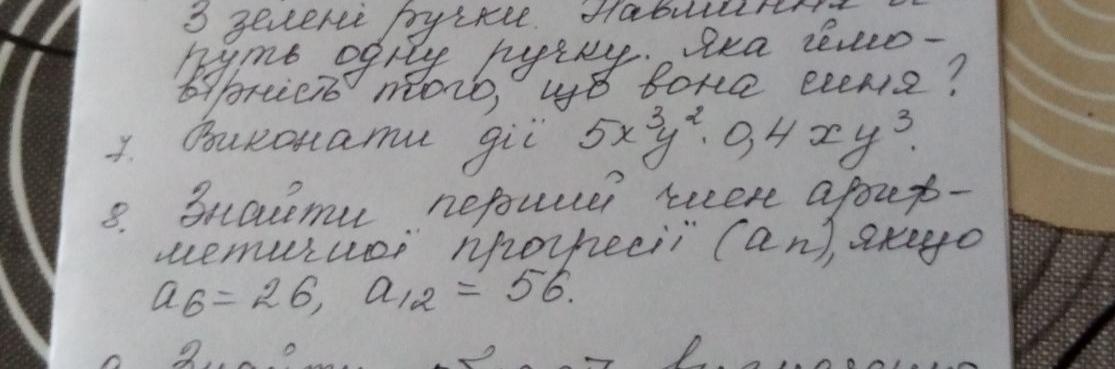 3 зелені ручки. Навмання
путь одну ручку. Яка ймо-
вірність того, що вона синя?
7. Виконати дії 5x³y² · 0,4xy³.
8. Знайти перший член ариф-
метичної прогресії (an), якщо
a₆ = 26, a₁₂ = 56.
9. Знайти область визначення